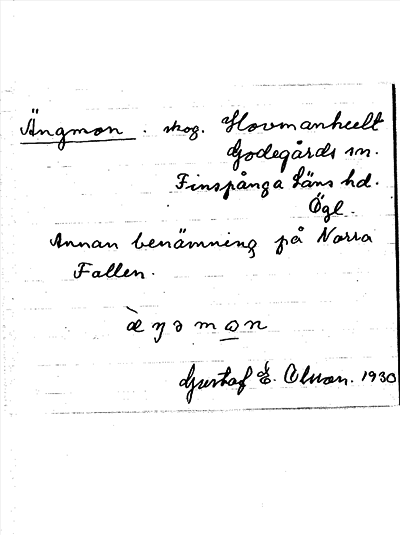 Ängmon. skog. Hovmanhult
Godegårds sn.
Finspånga Läns hd.
Ögl.
Annan benämning på Norra
Fallen.
æ̀ŋəmɷn
Gustaf E. Olsson. 1930